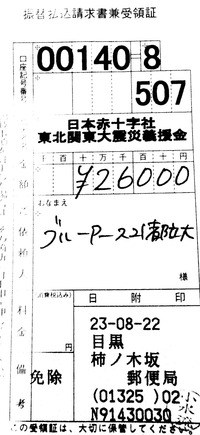 振替払込請求書兼受領証
口座記号番号
00140 8
507
日本赤十字社
東北関東大震災義援金
金額
千 百 十 万 千 百 十 円
¥26000
おなまえ
様
料金
(消費税込み)
円
備考
免除
日附印
23-08-22
目黒
柿ノ木坂
郵便局
(01325 )02
N91430030
この受領証は、大切に保管してください。